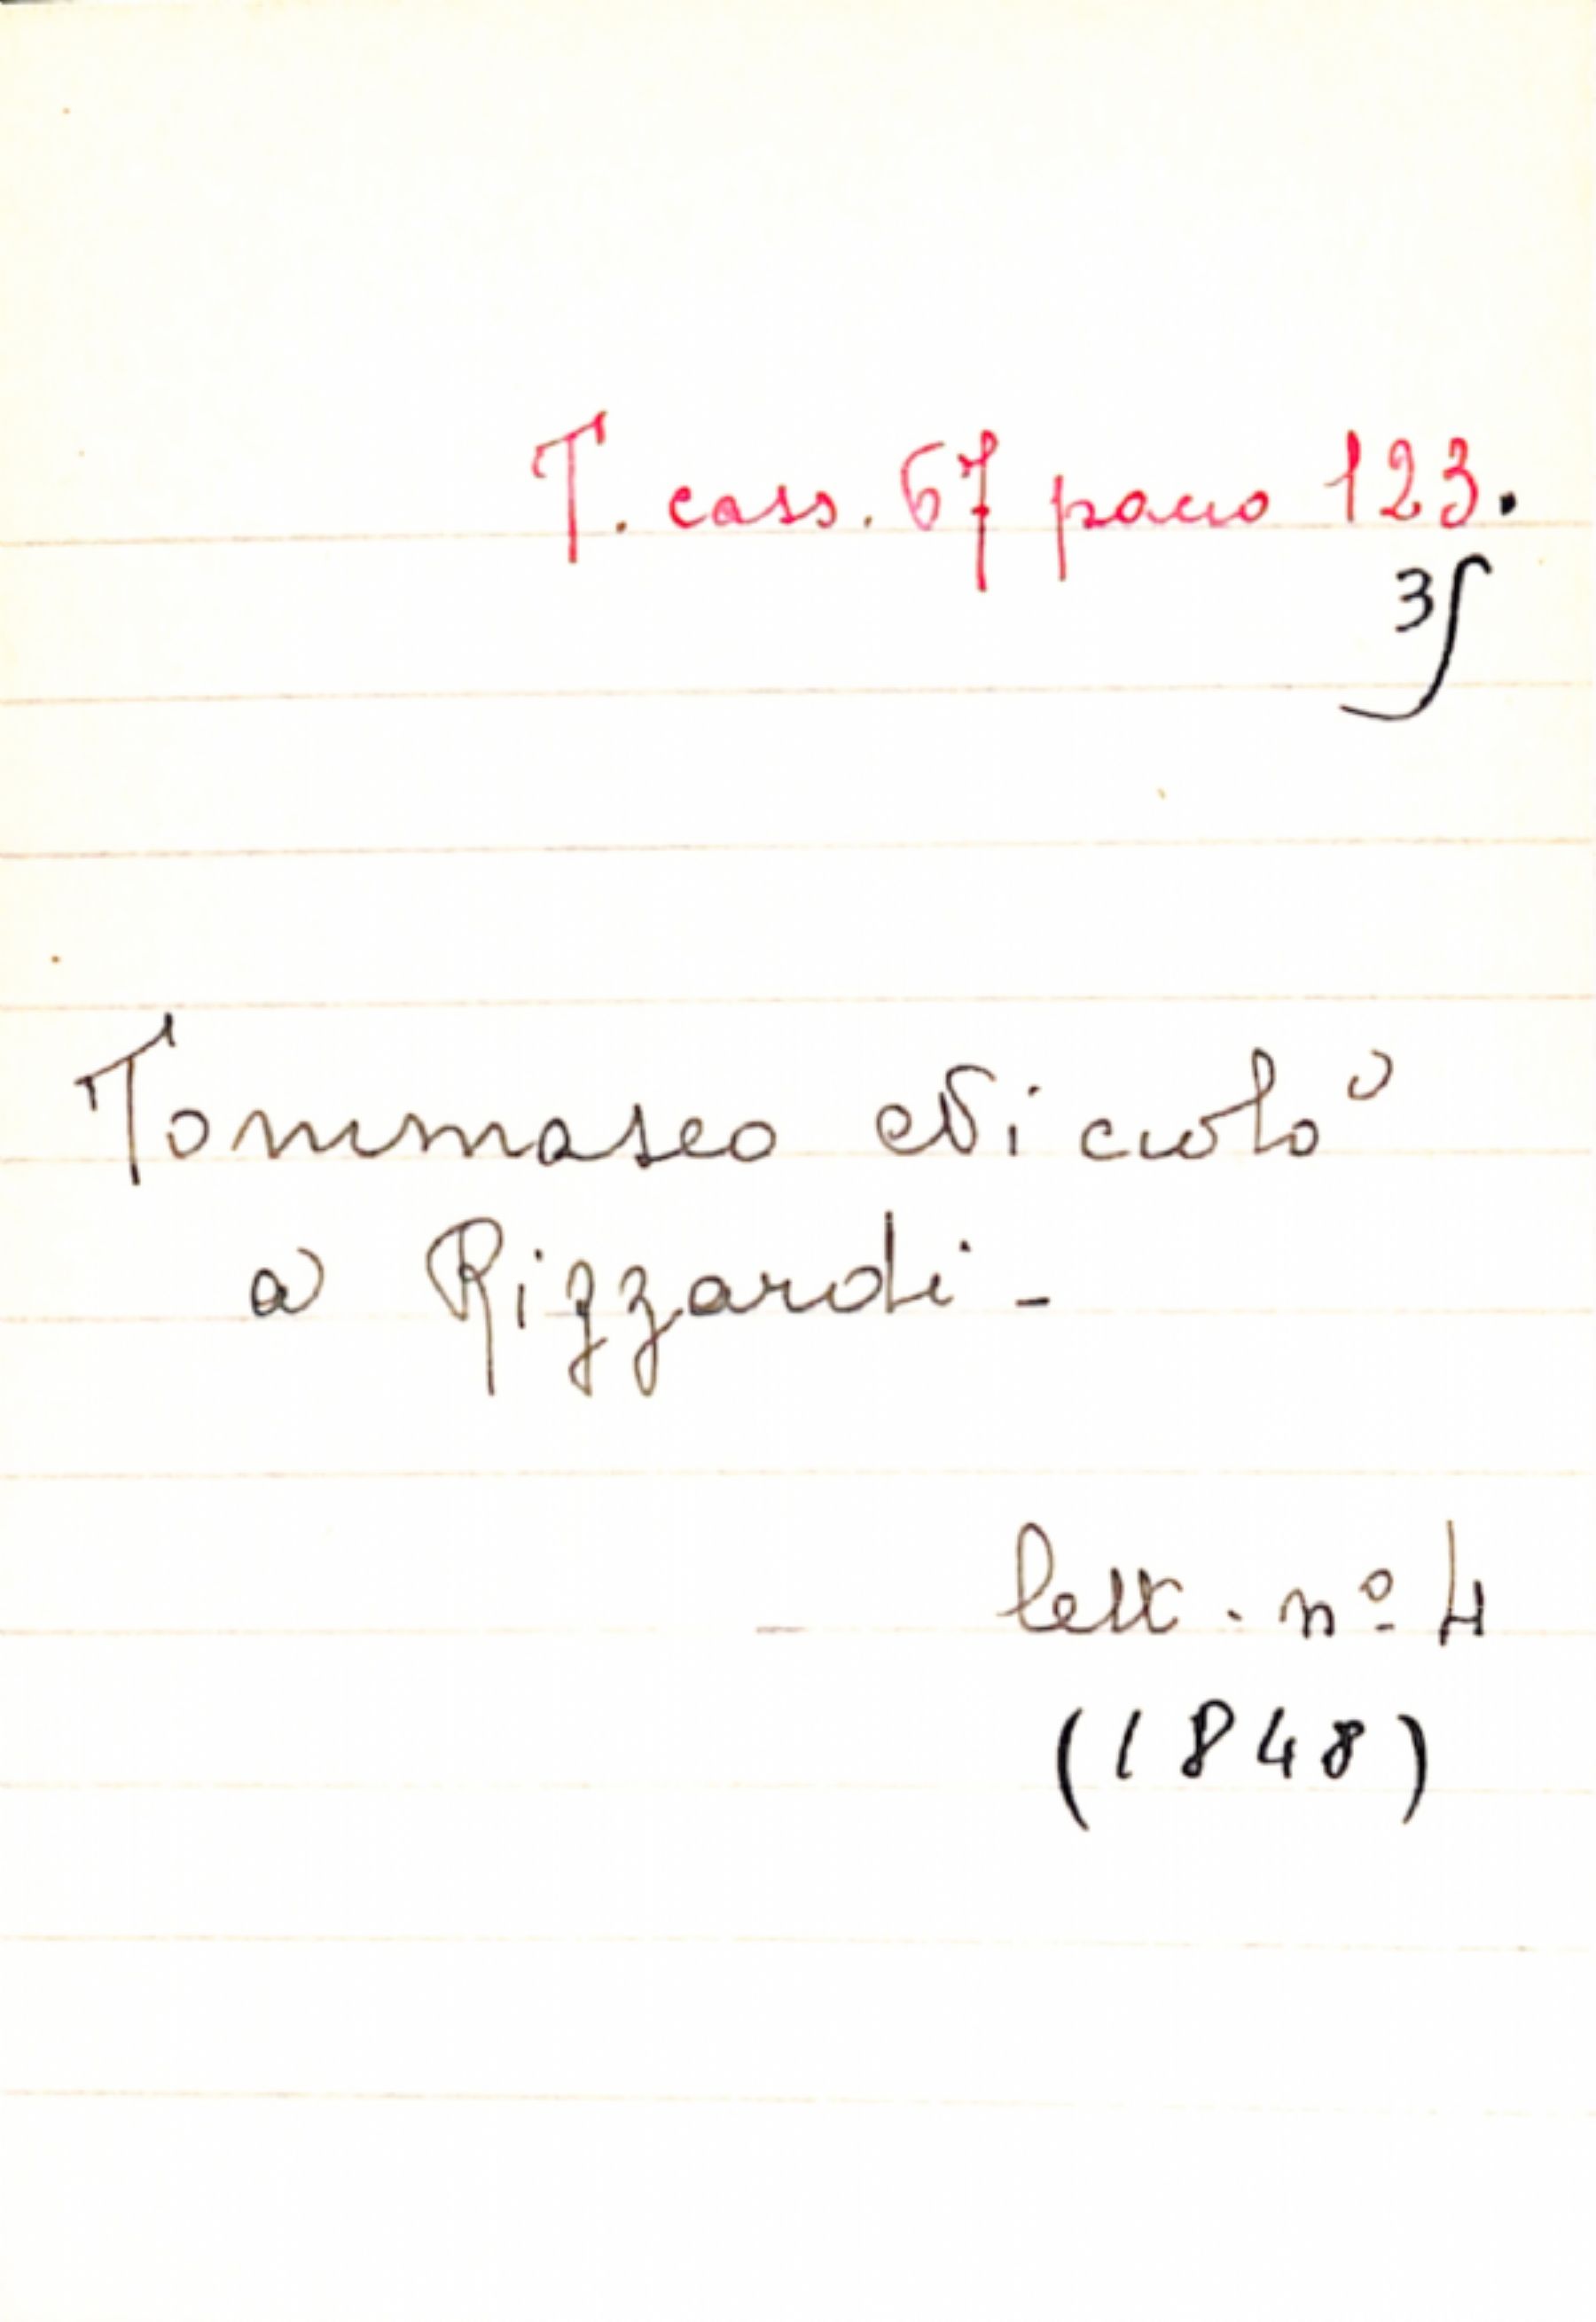 T. cass. 67 pacco 123.
3
Tommaseo Niccolò
a Rizzardi -
- lett. nº 4
(1848)